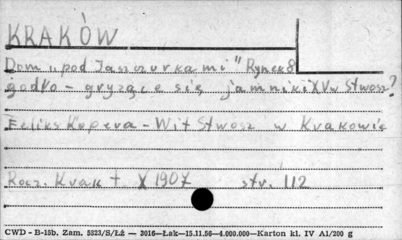 KRAKÓW
Dom „pod Jaszczurkami" Rynek 8
godło - gryzące się jamniki XV w Stwosz?
Feliks Kopera - Wit Stwosz w Krakowie
Rocz. Krak t X 1907 str. 112
CWD - B-15b, Zam. 5323/S/Łź — 3016—Łak—15.11.56—4.000.000—Karton kl. IV A1/200 g